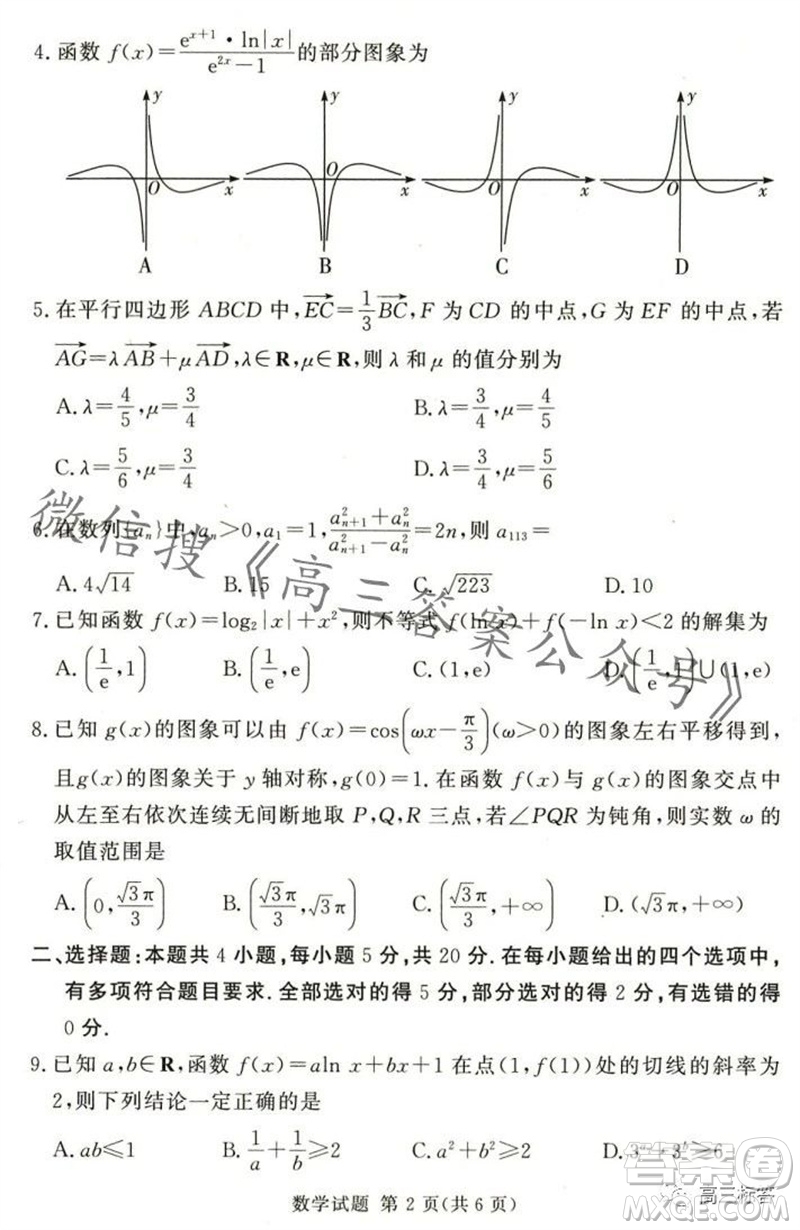 4. 函数 f(x)=\frac{e^{x+1}·ln|x|}{e^{2x}-1}的部分图象为
y y y y
O x O x O x O x
A B C D
5. 在平行四边形 ABCD 中,\overrightarrow{EC}=\frac{1}{3}\overrightarrow{BC},F 为 CD 的中点,G 为 EF 的中点,若
\overrightarrow{AG}=λ\overrightarrow{AB}+μ\overrightarrow{AD},λ∈R,μ∈R,则 λ 和 μ 的值分别为
A. λ=\frac{4}{5},μ=\frac{3}{4} B. λ=\frac{3}{4},μ=\frac{4}{5}
C. λ=\frac{5}{6},μ=\frac{3}{4} D. λ=\frac{3}{4},μ=\frac{5}{6}
6. 在数列{a_n}中,a_n>0,a_1=1,\frac{a_{n+1}^2+a_n^2}{a_{n+1}^2-a_n^2}=2n,则 a_{113}=
A. 4\sqrt{14} B. 15 C. \sqrt{223} D. 10
7. 已知函数 f(x)=log_2|x|+x^2,则不等式 f(ln x)+f(-ln x)<2 的解集为
A. (\frac{1}{e},1) B. (\frac{1}{e},e) C. (1,e) D. (\frac{1}{e},1)∪(1,e)
8. 已知 g(x)的图象可以由 f(x)=cos(ωx-\frac{π}{3})(ω>0)的图象左右平移得到,
且g(x)的图象关于 y 轴对称,g(0)=1. 在函数 f(x)与 g(x)的图象交点中
从左至右依次连续无间断地取 P,Q,R 三点,若∠PQR 为钝角,则实数 ω 的
取值范围是
A. (0,\frac{\sqrt{3}π}{3}) B. (\frac{\sqrt{3}π}{3},\sqrt{3}π) C. (\frac{\sqrt{3}π}{3},+∞) D. (\sqrt{3}π,+∞)
二、选择题:本题共 4 小题,每小题 5 分,共 20 分. 在每小题给出的四个选项中,
有多项符合题目要求. 全部选对的得 5 分,部分选对的得 2 分,有选错的得
0 分.
9. 已知 a,b∈R,函数 f(x)=aln x+bx+1 在点(1,f(1))处的切线的斜率为
2,则下列结论一定正确的是
A. ab≤1 B. \frac{1}{a}+\frac{1}{b}≥2 C. a^2+b^2≥2 D. 3^a+3^b≥6
数学试题 第 2 页(共 6 页)
微信搜《高三答案公众号》
答案卷
高三标答
MXQE.COM